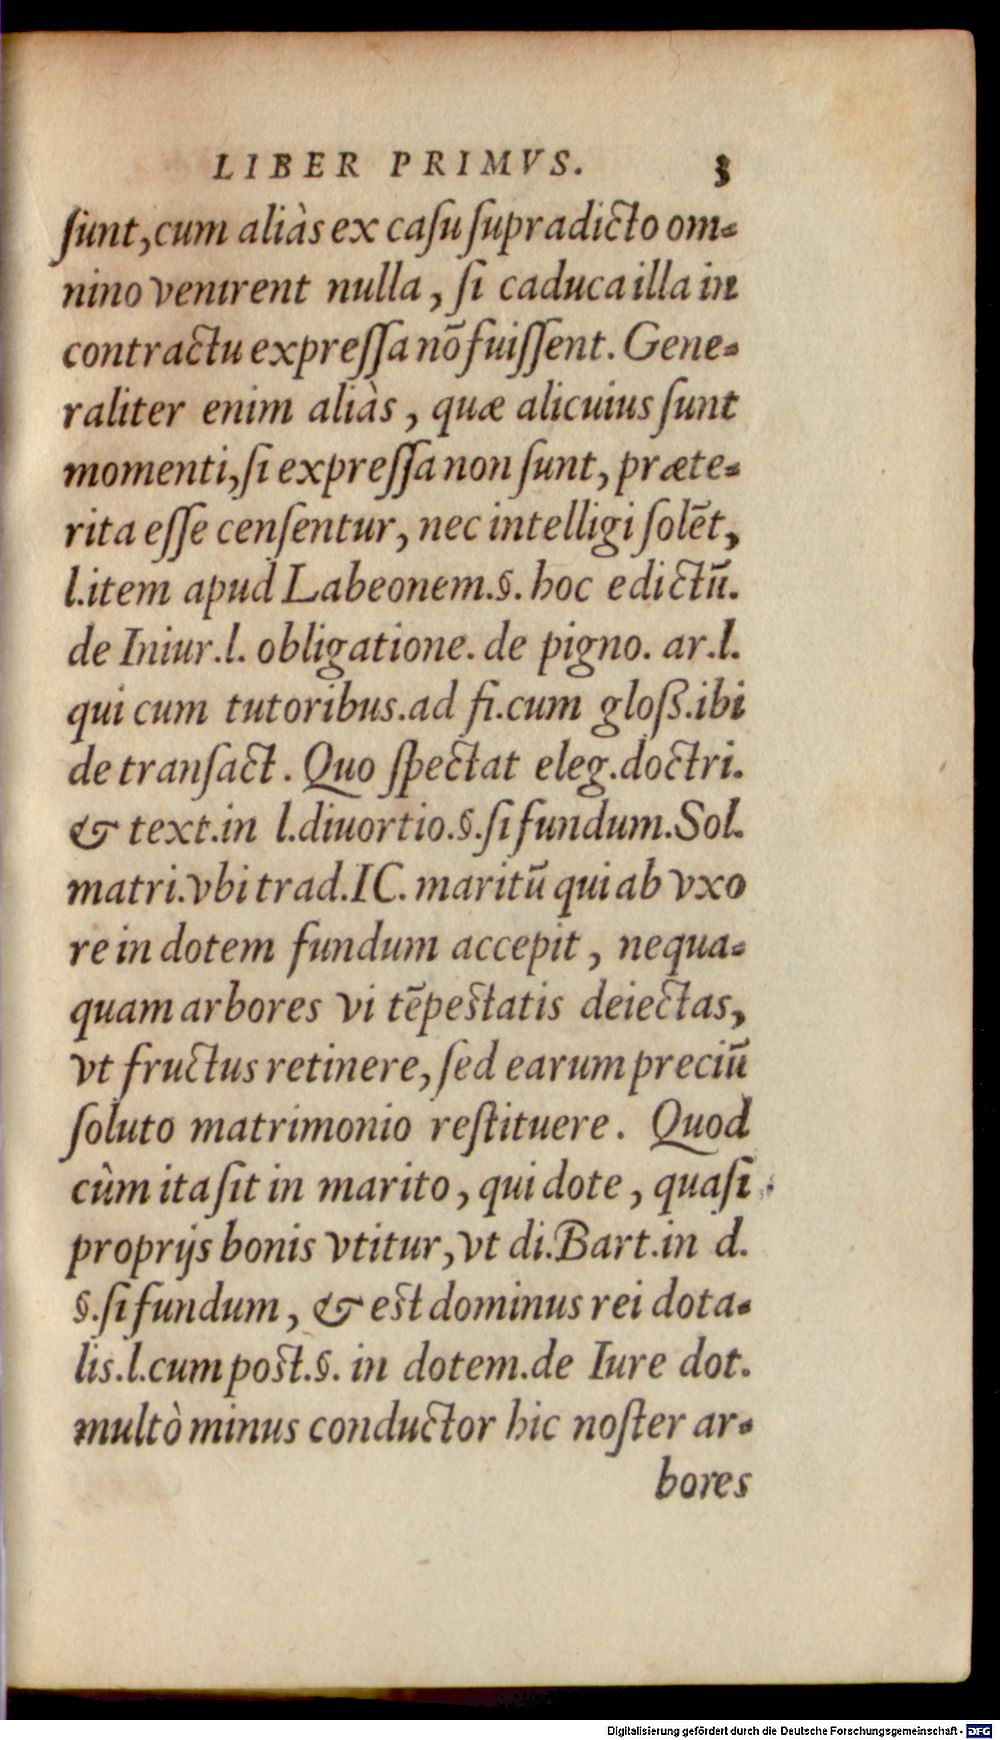 LIBER PRIMVS. 3
ſunt, cum aliàs ex caſu ſupradicto om-
nino venirent nulla, ſi caduca illa in
contractu expreſſa nō fuiſſent. Gene-
raliter enim aliàs, quæ alicuius ſunt
momenti, ſi expreſſa non ſunt, præte-
rita eſſe cenſentur, nec intelligi ſolēt,
l.item apud Labeonem.§. hoc edictū.
de Iniur.l. obligatione. de pigno. ar.l.
qui cum tutoribus.ad fi.cum gloß.ibi
de tranſact. Quo ſpectat eleg.doctri.
& text.in l.diuortio.§.ſi fundum.Sol.
matri.vbi trad.IC. maritū qui ab vxo
re in dotem fundum accepit, nequa-
quam arbores vi tēpestatis deiectas,
vt fructus retinere, ſed earum preciū
ſoluto matrimonio reſtituere. Quod
cùm ita ſit in marito, qui dote, quaſi
proprijs bonis vtitur, vt di.Bart.in d.
§.ſi fundum, & est dominus rei dota-
lis.l.cum post.§. in dotem.de Iure dot.
multò minus conductor hic noſter ar-
bores
Digitalisierung gefördert durch die Deutsche Forschungsgemeinschaft - DFG